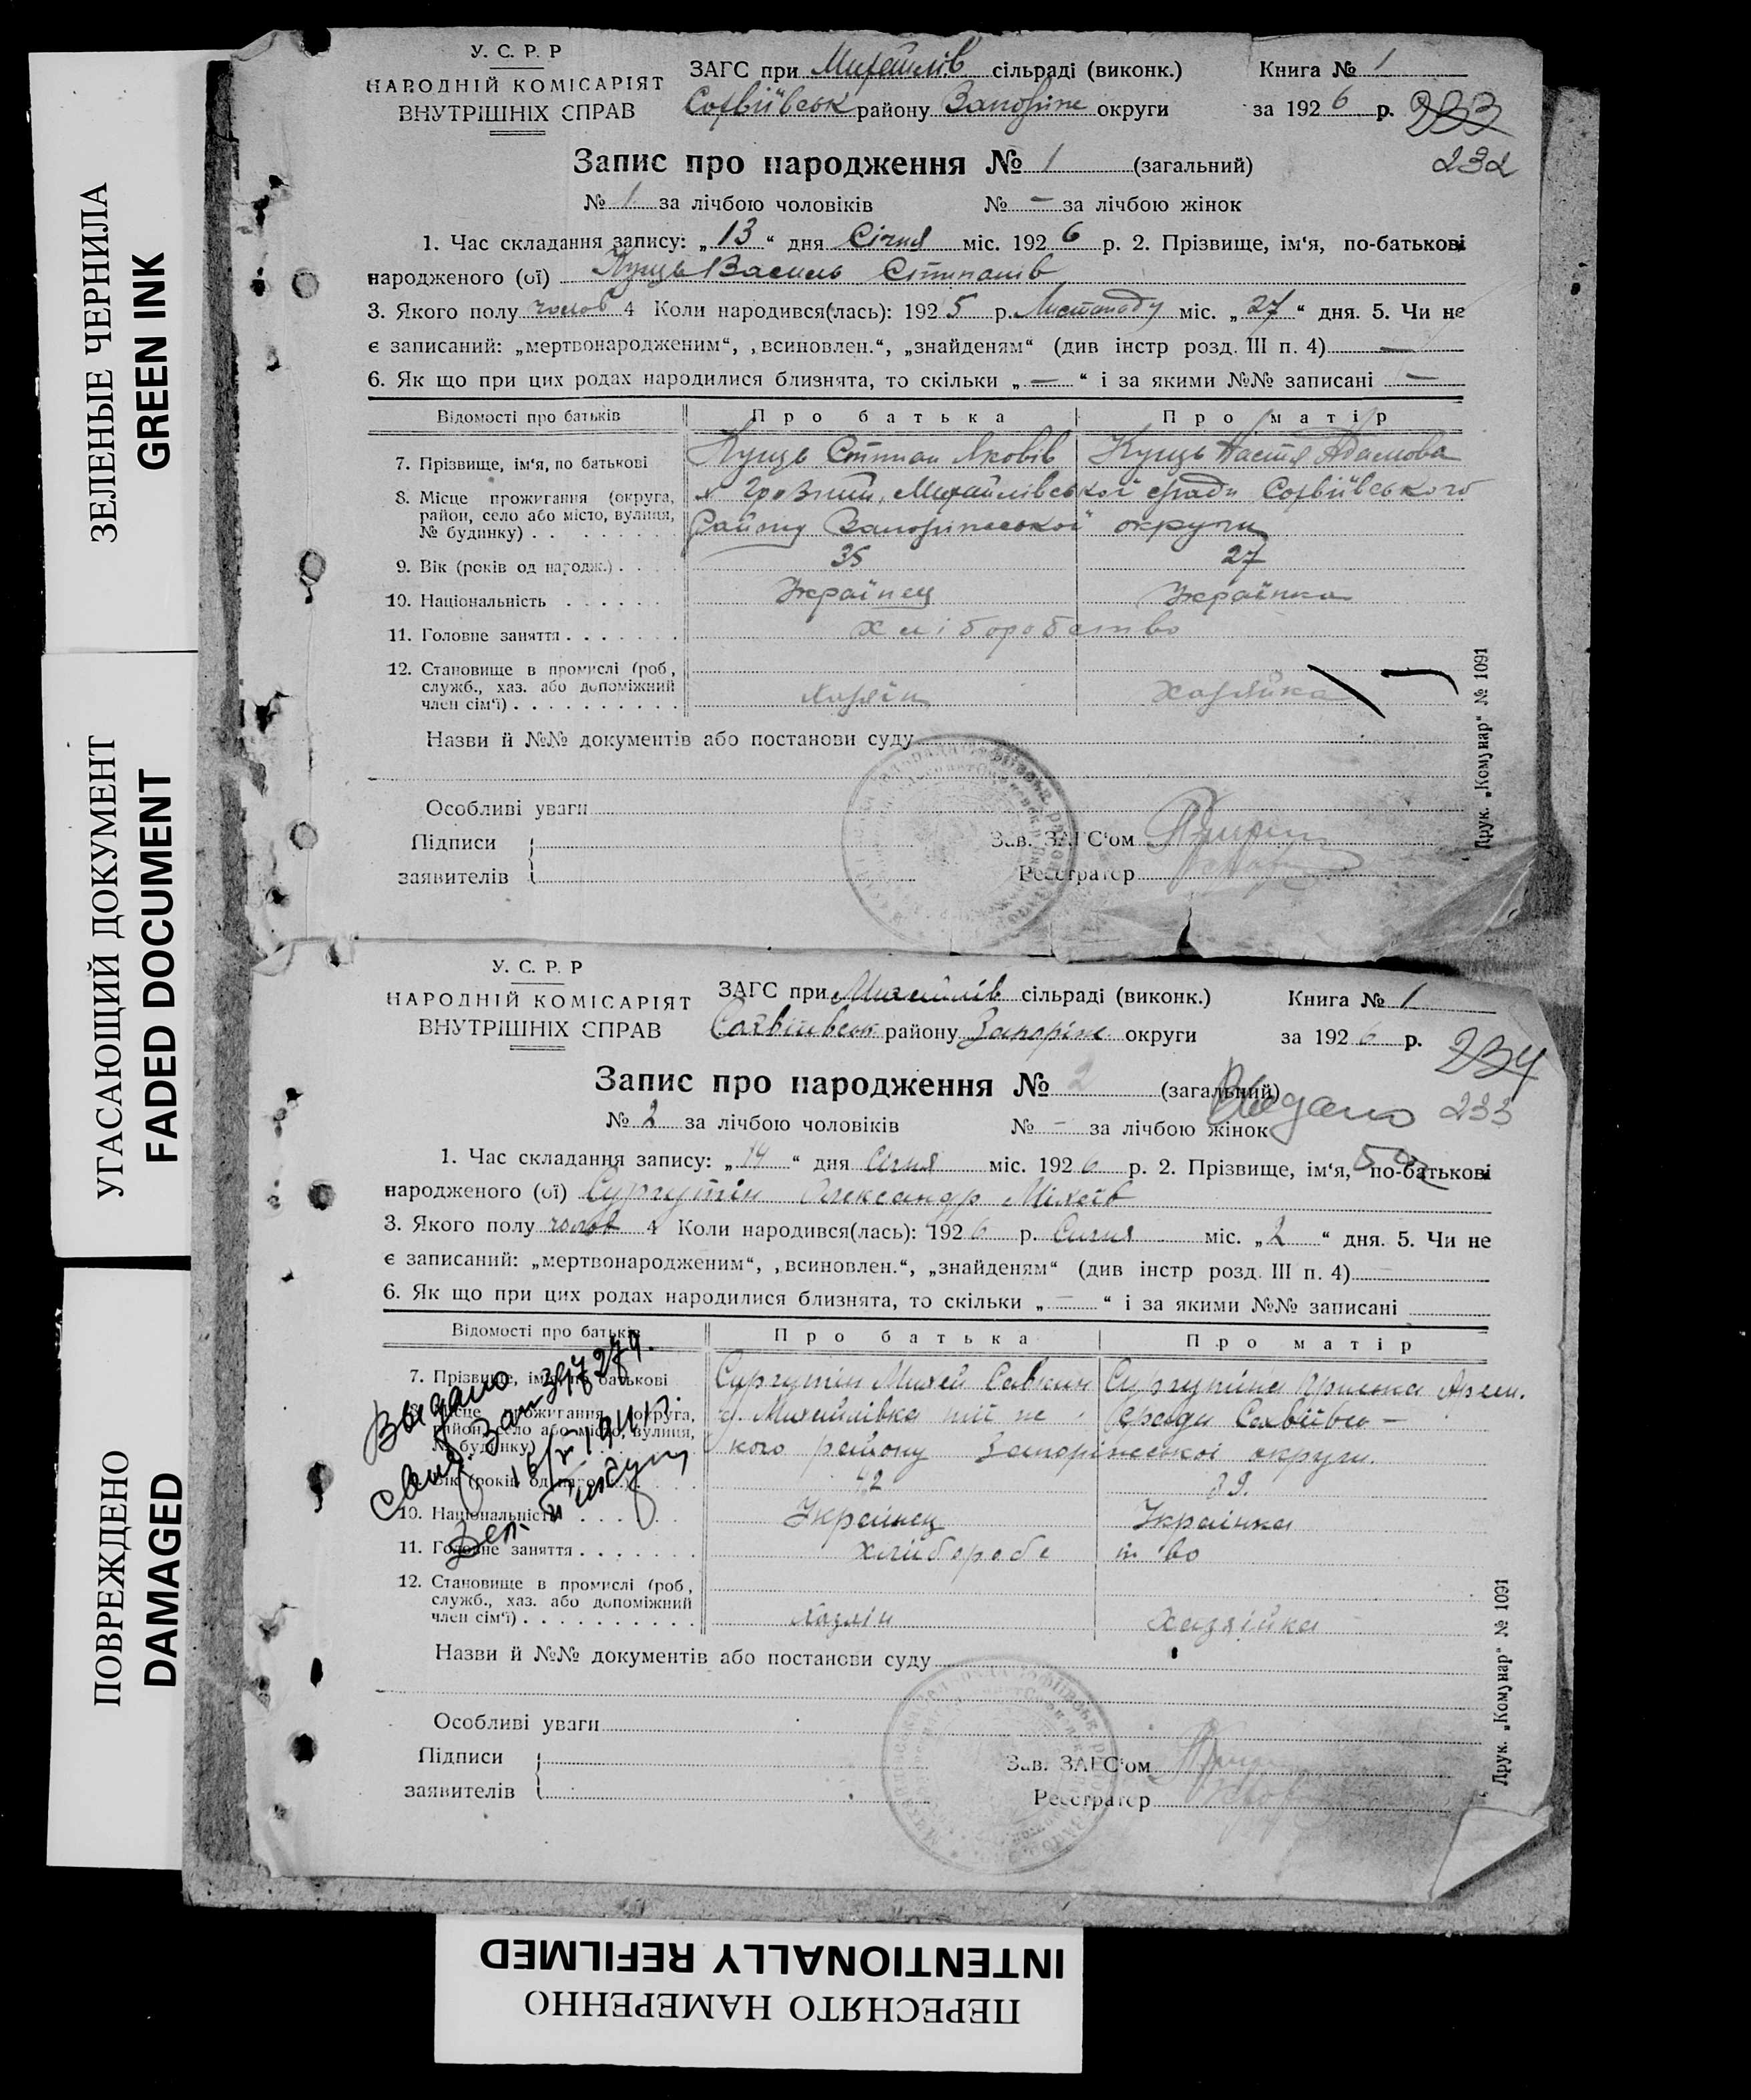 ЗЕЛЕНЫЕ ЧЕРНИЛА
GREEN INK
УГАСАЮЩИЙ ДОКУМЕНТ
FADED DOCUMENT
ПОВРЕЖДЕНО
DAMAGED
У. С. Р. Р
НАРОДНІЙ КОМІСАРІЯТ
ВНУТРІШНІХ СПРАВ
ЗАГС при Михайлів сільраді (виконк.) Книга № 1
Софіївськ району Запоріж округи за 1926 р. 233
232
Запис про народження № 1 (загальний)
№ 1 за лічбою чоловіків № — за лічбою жінок
1. Час складання запису: „13“ дня Січня міс. 1926 р. 2. Прізвище, ім‘я, по-батькові
народженого (ої) Куць Василь Степанів
3. Якого полу чолов 4 Коли народився(лась): 1925 р. Листопаду міс. „27“ дня. 5. Чи не
є записаний: „мертвонародженим“, „всиновлен.“, „знайденям“ (див інстр розд. III п. 4) —
6. Як що при цих родах народилися близнята, то скільки „—“ і за якими №№ записані —
Відомості про батьків Про батька Про матір
7. Прізвище, ім‘я, по батькові Куць Степан Яковів Куць Настя Адамова
8. Місце прожигання (округа, район, село або місто, вулиця, № будинку) Михайлівської сради Софіївського
Району Запоріжської округи
9. Вік (років од народж.) 35 27
10. Національність Українец Українка
11. Головне заняття хліборобство
12. Становище в промислі (роб, служб., хаз. або допоміжний член сім‘ї) Хазяїн Хазяйка
Назви й №№ документів або постанови суду
Особливі уваги
Підписи
заявителів
Зав. ЗАГС‘ом
Реєстратор
Друк. „Комунар“ № 1091
У. С. Р. Р
НАРОДНІЙ КОМІСАРІЯТ
ВНУТРІШНІХ СПРАВ
ЗАГС при Михайлів сільраді (виконк.) Книга № 1
Софіївськ району Запоріж округи за 1926 р. 234
Запис про народження № 2 (загальний) Выдано 233
№ 2 за лічбою чоловіків № — за лічбою жінок
1. Час складання запису: „14“ дня Січня міс. 1926 р. 2. Прізвище, ім‘я, по-батькові
народженого (ої) Сургутін Александр Міхеїв
3. Якого полу чолов 4 Коли народився(лась): 1926 р. Сичня міс. „2“ дня. 5. Чи не
є записаний: „мертвонародженим“, „всиновлен.“, „знайденям“ (див інстр розд. III п. 4)
6. Як що при цих родах народилися близнята, то скільки „—“ і за якими №№ записані
Відомості про батьків Про батька Про матір
7. Прізвище, ім‘я, по батькові Сургутін Михей Савкин Сургутіна
8. Місце прожигання (округа, район, село або місто, вулиця, № будинку) с. Михайлівка тії же сради Софіївсь-
кого району Запоріжської округи.
Вік (років од народж.) 42 39.
10. Національність Украінец Украінка
11. Головне заняття хліборобство
12. Становище в промислі (роб, служб., хаз. або допоміжний член сім‘ї) Хазяін Хазяійка
Выдано
Назви й №№ документів або постанови суду
Особливі уваги
Підписи
заявителів
Зав. ЗАГС‘ом
Реєстратор
Друк. „Комунар“ № 1091
ПЕРЕСНЯТО НАМЕРЕННО
INTENTIONALLY REFILMED